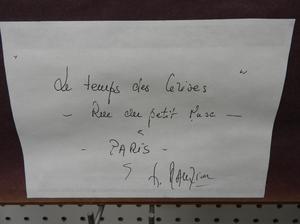 " Le temps des Cerises "
- Rue du petit Musc -
à
- PARIS -